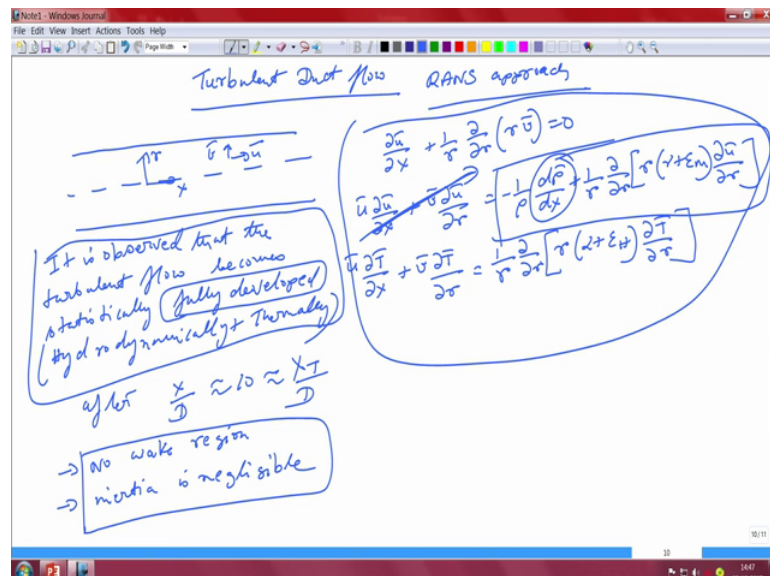 Note1 - Windows Journal
File Edit View Insert Actions Tools Help
Page Width
Turbulent Duct flow RANS approach
r
x
v̄ ū
It is observed that the
turbulent flow becomes
statistically fully developed
(Hydrodynamically + Thermally)
after x/D ≈ 10 ≈ X_T/D
→ No wake region
→ inertia is negligible
∂ū/∂x + 1/r ∂/∂r (r v̄) = 0
ū ∂ū/∂x + v̄ ∂ū/∂r = -1/ρ dp̄/dx + 1/r ∂/∂r [r(ν+ε_M) ∂ū/∂r]
ū ∂T̄/∂x + v̄ ∂T̄/∂r = 1/r ∂/∂r [r(α+ε_H) ∂T̄/∂r]
10/11
10
14:47